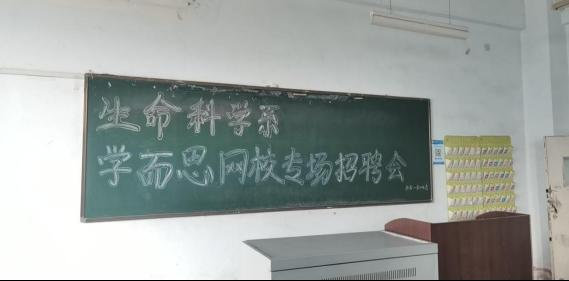 生命科学系
学而思网校专场招聘会